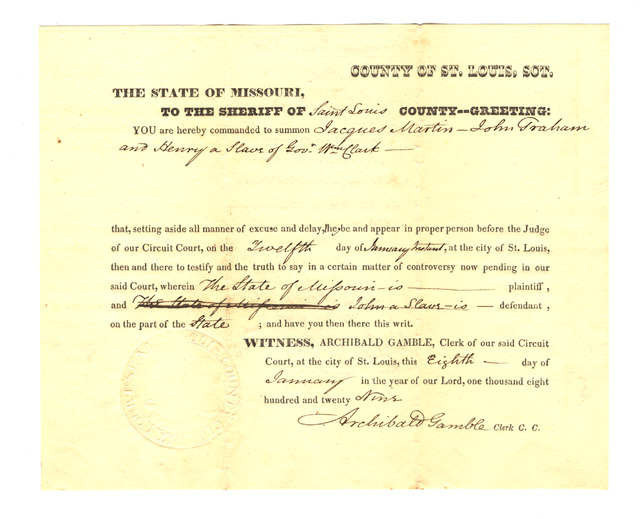 COUNTY OF ST. LOUIS, SCT.
THE STATE OF MISSOURI,
TO THE SHERIFF OF Saint Louis COUNTY--GREETING:
YOU are hereby commanded to summon Jacques Martin – John Graham
and Henry a Slave of Govr. Wm Clark —
that, setting aside all manner of excuse and delay, they be and appear in proper person before the Judge
of our Circuit Court, on the Twelfth day of January Instant, at the city of St. Louis,
then and there to testify and the truth to say in a certain matter of controversy now pending in our
said Court, wherein The State of Missouri – is — plaintiff,
and The State of Missouri – is John a Slave – is — defendant,
on the part of the State ; and have you then there this writ.
WITNESS, ARCHIBALD GAMBLE, Clerk of our said Circuit
Court, at the city of St. Louis, this Eighth — day of
January in the year of our Lord, one thousand eight
hundred and twenty Nine
Archibald Gamble Clerk C. C.